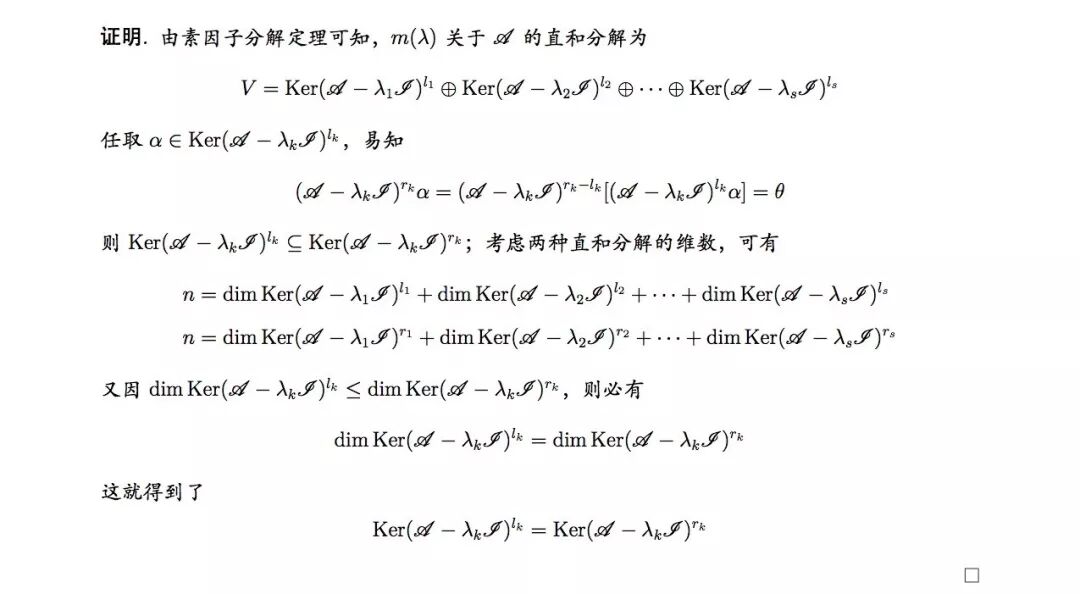 证明. 由素因子分解定理可知，m(λ) 关于 𝒜 的直和分解为
V = Ker(𝒜 − λ₁ℐ)^{l₁} ⊕ Ker(𝒜 − λ₂ℐ)^{l₂} ⊕ ⋯ ⊕ Ker(𝒜 − λₛℐ)^{lₛ}
任取 α ∈ Ker(𝒜 − λₖℐ)^{lₖ}，易知
(𝒜 − λₖℐ)^{rₖ}α = (𝒜 − λₖℐ)^{rₖ−lₖ}[(𝒜 − λₖℐ)^{lₖ}α] = θ
则 Ker(𝒜 − λₖℐ)^{lₖ} ⊆ Ker(𝒜 − λₖℐ)^{rₖ}；考虑两种直和分解的维数，可有
n = dim Ker(𝒜 − λ₁ℐ)^{l₁} + dim Ker(𝒜 − λ₂ℐ)^{l₂} + ⋯ + dim Ker(𝒜 − λₛℐ)^{lₛ}
n = dim Ker(𝒜 − λ₁ℐ)^{r₁} + dim Ker(𝒜 − λ₂ℐ)^{r₂} + ⋯ + dim Ker(𝒜 − λₛℐ)^{rₛ}
又因 dim Ker(𝒜 − λₖℐ)^{lₖ} ≤ dim Ker(𝒜 − λₖℐ)^{rₖ}，则必有
dim Ker(𝒜 − λₖℐ)^{lₖ} = dim Ker(𝒜 − λₖℐ)^{rₖ}
这就得到了
Ker(𝒜 − λₖℐ)^{lₖ} = Ker(𝒜 − λₖℐ)^{rₖ}
□